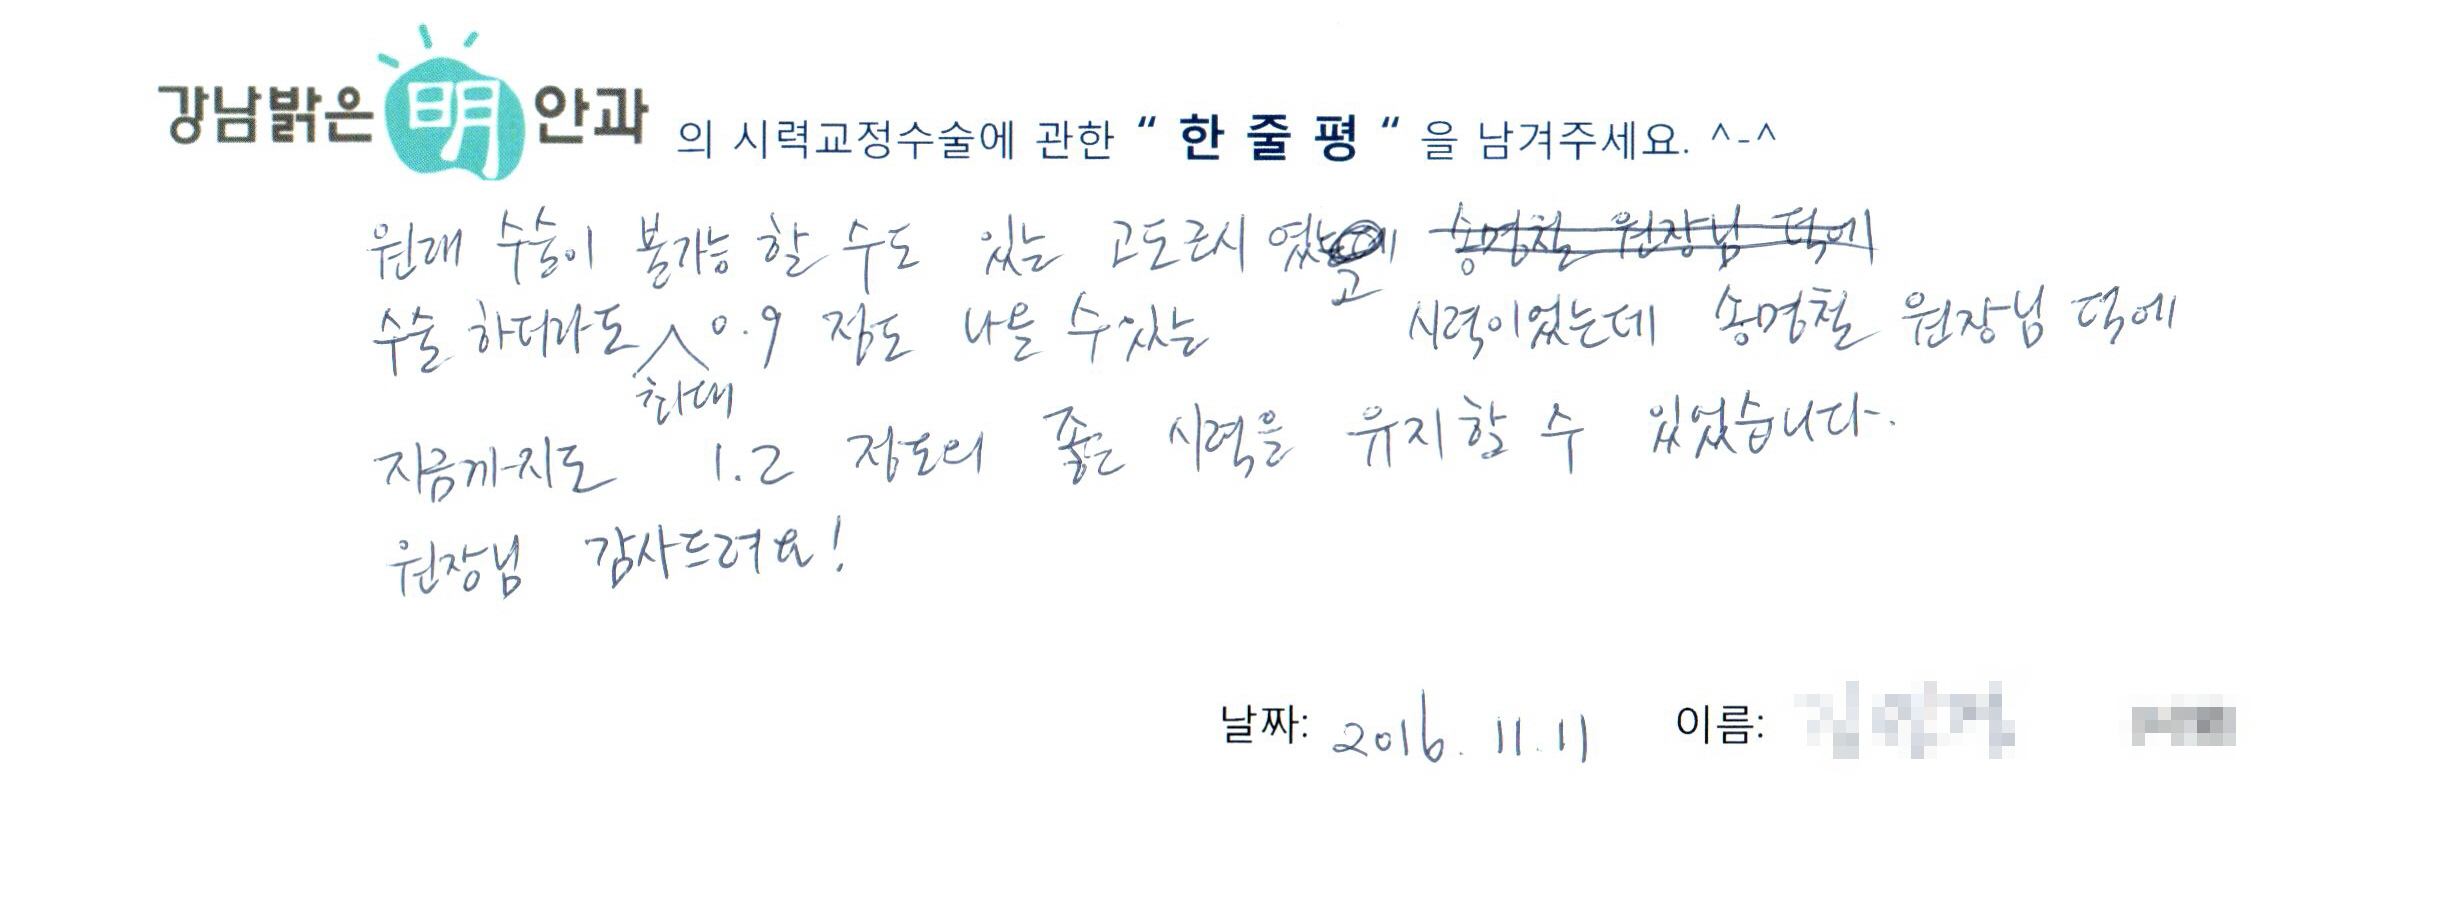 강남밝은 明 안과 의 시력교정수술에 관한 “ 한 줄 평 “ 을 남겨주세요. ^-^
원래 수술이 불가능 할 수도 있는 고도근시 였고 송명철 원장님 덕에
수술 하더라도 최대 0.9 정도 나올 수 있는 시력이었는데 송명철 원장님 덕에
지금까지도 1.2 정도의 좋은 시력을 유지할 수 있었습니다.
원장님 감사드려요!
날짜: 2016. 11. 11 이름: